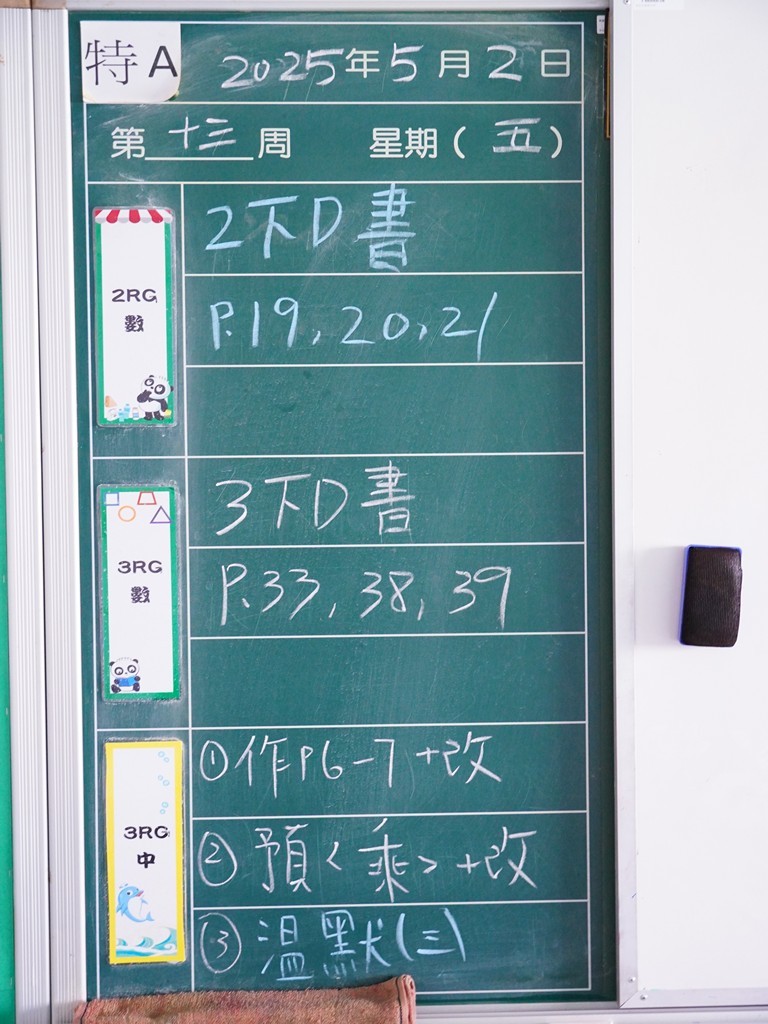 特A 2025年5月2日
第十三周 星期(五)
2RG
數
2下D書
P.19, 20, 21
3RG
數
3下D書
P.33, 38, 39
3RG
中
①作P6-7+改
②預<乘>+改
③溫默(三)